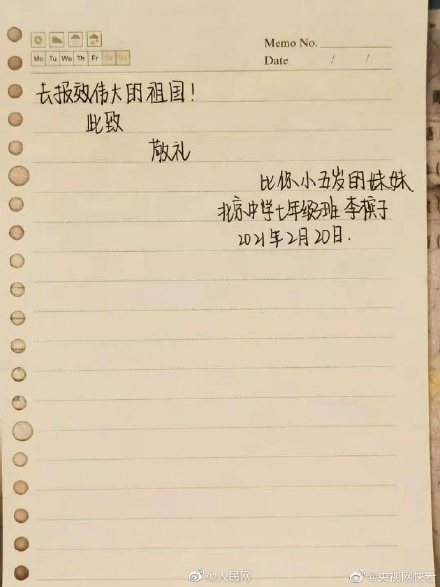 Memo No.
Mo Tu We Th Fr Sa Su
Date / /
去报效伟大的祖国！
此致
敬礼
比你小五岁的妹妹
北京中学七年级3班 李槟子
2021年2月20日.
@人民网
@央视网快看